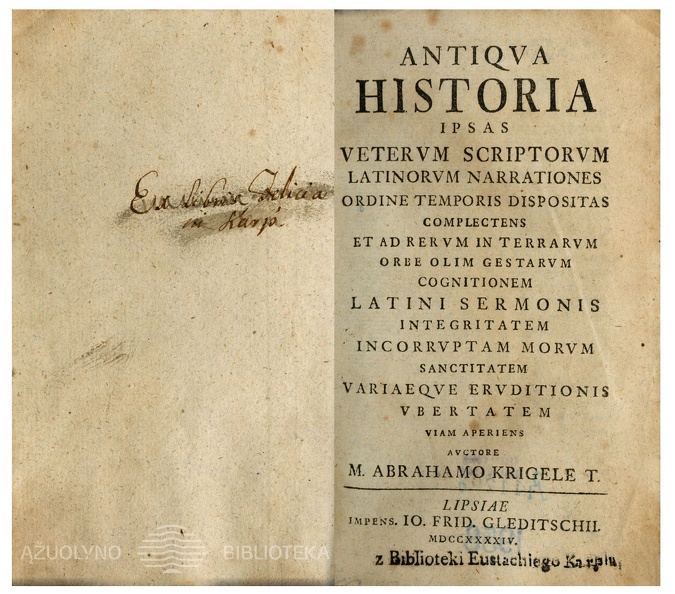 Ex Libris Felicia
Karp
AŽUOLYNO BIBLIOTEKA
ANTIQVA
HISTORIA
IPSAS
VETERVM SCRIPTORVM
LATINORVM NARRATIONES
ORDINE TEMPORIS DISPOSITAS
COMPLECTENS
ET AD RERVM IN TERRARVM
ORBE OLIM GESTARVM
COGNITIONEM
LATINI SERMONIS
INTEGRITATEM
INCORRVPTAM MORVM
SANCTITATEM
VARIAEQVE ERVDITIONIS
VBERTATEM
VIAM APERIENS
AVCTORE
M. ABRAHAMO KRIGELE T.
LIPSIAE
IMPENS. IO. FRID. GLEDITSCHII.
MDCCXXXXIV.
z Biblioteki Eustachiego Karpia,